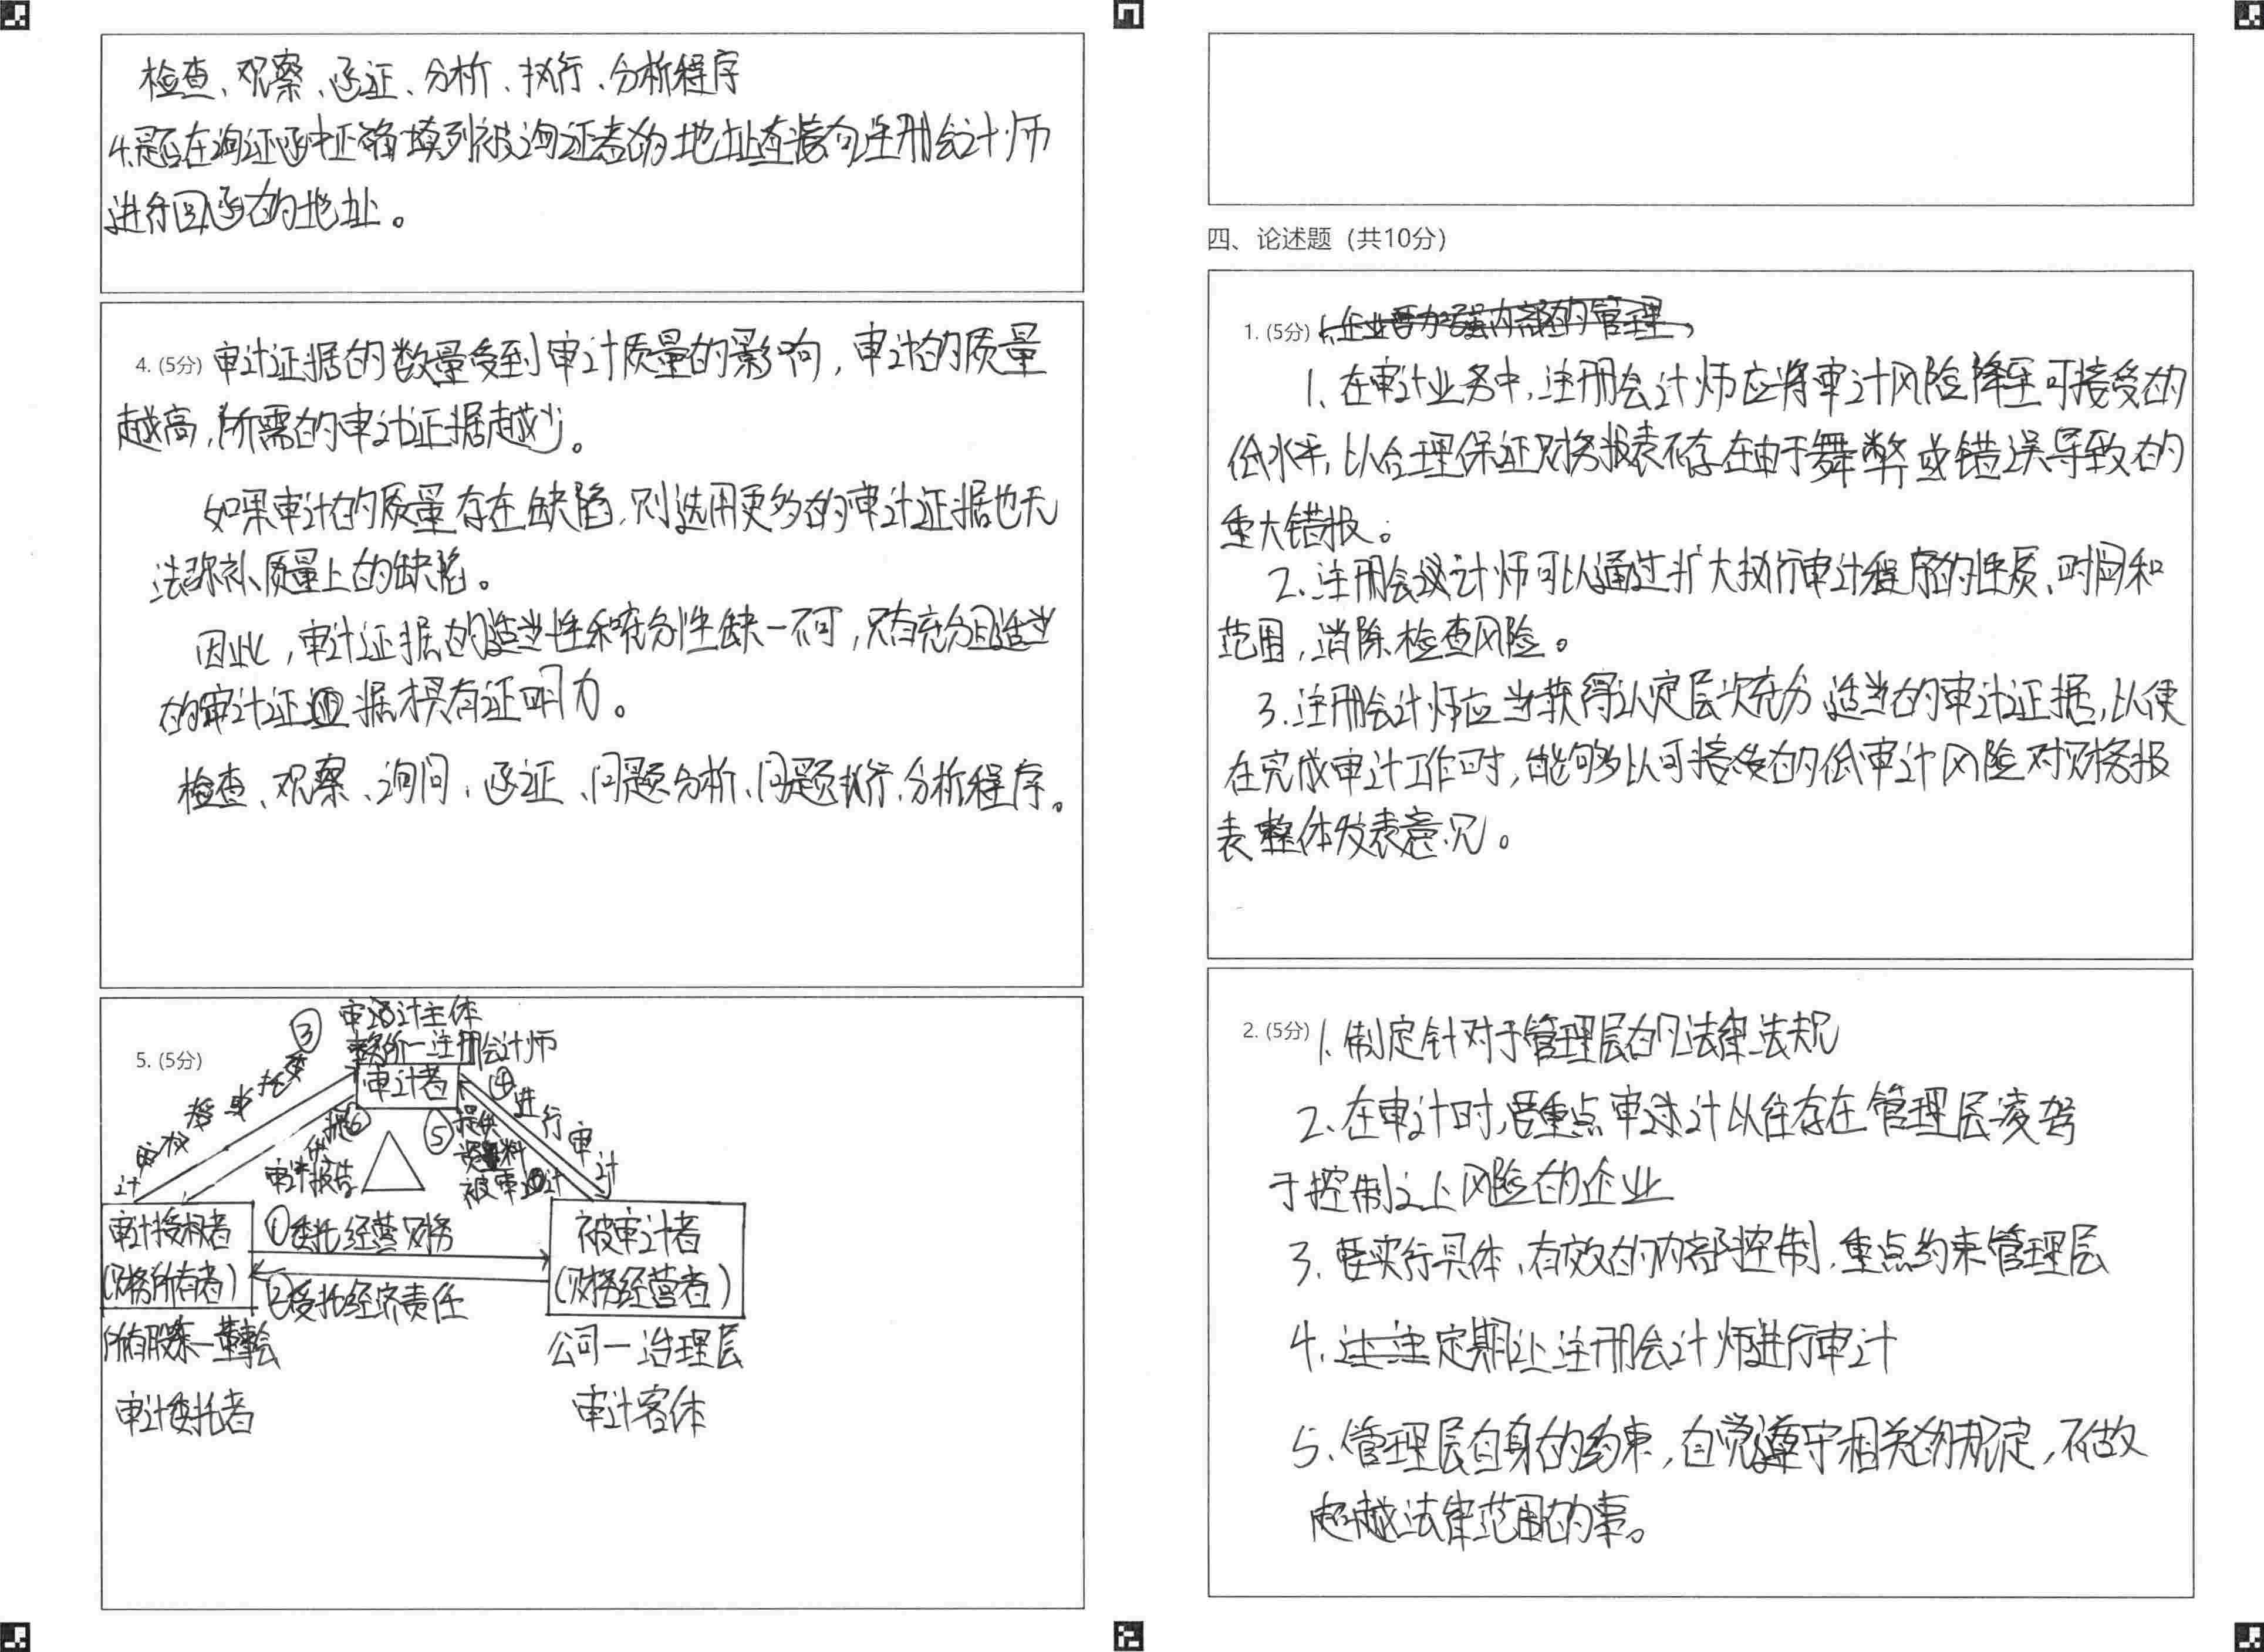 检查、观察、函证、分析、执行、分析程序
4.是否在询证函中正确填列被询证者的地址直接向注册会计师
进行回函的地址。
4. (5分) 审计证据的数量受到审计质量的影响，审计的质量
越高，所需的审计证据越少。
如果审计的质量存在缺陷，则选用更多的审计证据也无
法弥补质量上的缺陷。
因此，审计证据的适当性和充分性缺一不可，只有充分且适当
的审计证据才具有证明力。
检查、观察、询问、函证、问题分析、问题执行、分析程序。
5. (5分)
③
审计主体
注册会计师
审计者
授权或委托
审计
④进行审计
⑥提供
审计报告
⑤提供
资料
被审计
审计授权者
(财务所有者)
①委托经营财务
②受托经济责任
被审计者
(财务经营者)
所有股东—董事会
公司—治理层
审计委托者
审计客体
四、论述题（共10分）
1. (5分) 1、企业要加强内部的管理，
1、在审计业务中，注册会计师应将审计风险降至可接受的
低水平，以合理保证财务报表不存在由于舞弊或错误导致的
重大错报。
2、注册会计师可以通过扩大执行审计程序的性质、时间和
范围，消除检查风险。
3、注册会计师应当获得认定层次充分、适当的审计证据，以便
在完成审计工作时，能够以可接受的低审计风险对财务报
表整体发表意见。
2. (5分) 1、制定针对于管理层的法律法规
2、在审计时，要重点审计以往存在管理层凌驾
于控制之上风险的企业
3、要实行具体、有效的内部控制，重点约束管理层
4、定期让注册会计师进行审计
5、管理层自身的约束，自觉遵守相关的规定，不做
超越法律范围的事。